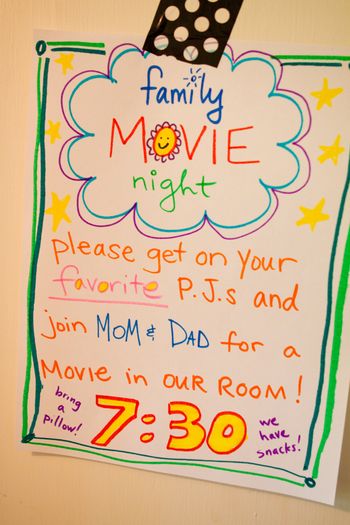 family
MOVIE
night
please get on your
favorite P.J.s and
join MOM & DAD for a
MOVIE in OUR ROOM!
bring
a
pillow!
7:30
we
have
snacks!